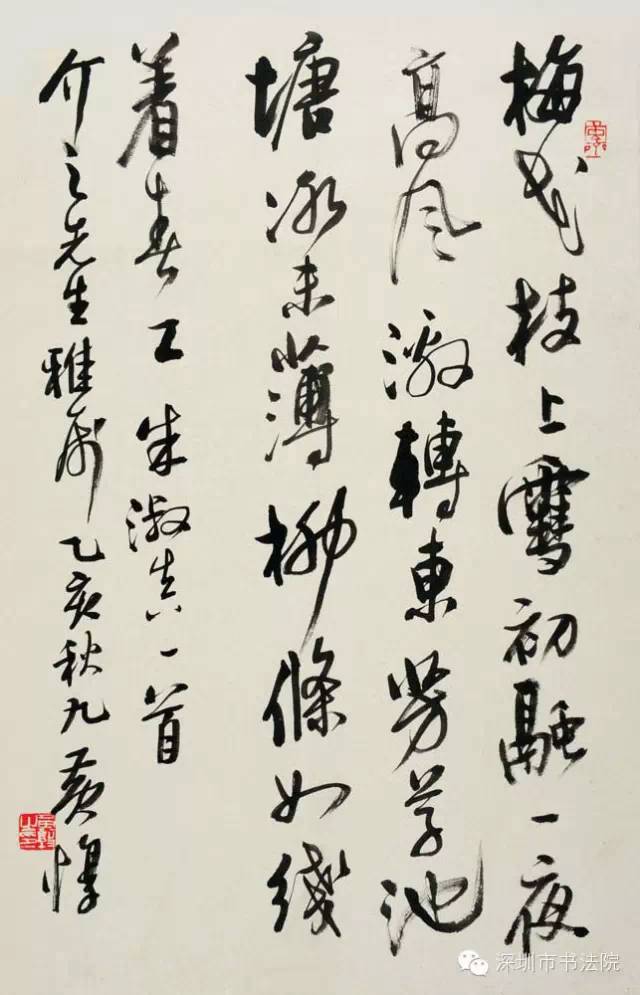 梅花枝上雪初融一夜
高风激转东芳草池
塘冰未薄柳條如线
着春工 朱淑真一首
介之先生雅属 乙亥秋九 黄惇
深圳市书法院